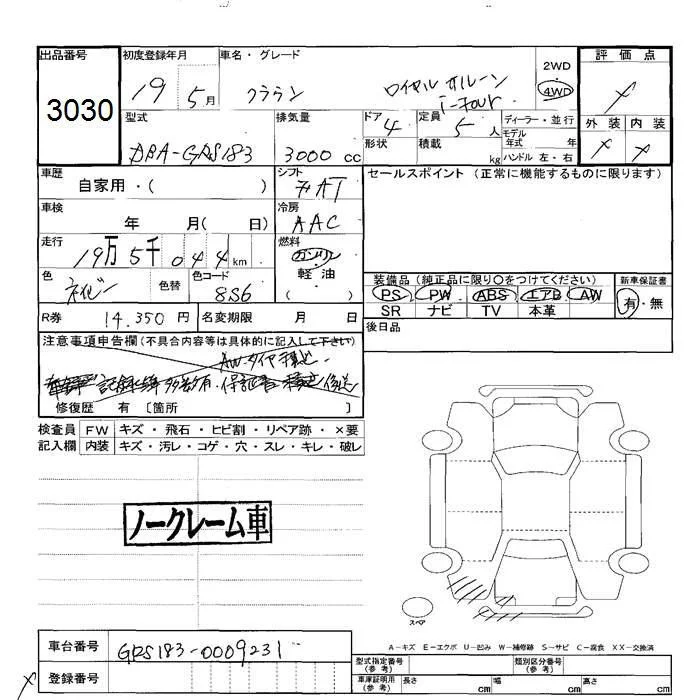 出品番号 初度登録年月 車名・グレード 2WD 評価点
3030 19 5月 クラウン ロイヤルサルーン i-Four 4WD ×
外装 内装
× ×
型式 排気量 ドア 定員 ディーラー・並行
DBA-GRS183 3000cc 4 5人 モデル年式 年
形状 積載 kg ハンドル 左・右
車歴 自家用・( ) シフト AT セールスポイント(正常に機能するものに限ります)
車検 年 月( 日) 冷房 AAC
走行 19万5千044km 燃料 ガソリン
軽油
( )
色 ネイビー 色替 色コード 8S6
装備品(純正品に限り○をつけてください) 新車保証書
PS PW ABS エアB AW 有・無
SR ナビ TV 本革
R券 14.350円 名変期限 月 日 後日品
注意事項申告欄(不具合内容等は具体的に記入して下さい)
修復歴 有 〔箇所 〕
検査員記入欄 FW キズ・飛石・ヒビ割・リペア跡・×要
内装 キズ・汚レ・コゲ・穴・スレ・キレ・破レ
ノークレーム車
スペア
A-キズ E-エクボ U-凹み W-補修跡 S-サビ C-腐食 XX-交換済
車台番号 GRS183-0009231
型式指定番号(参考) 類別区分番号(参考)
登録番号
車庫証明用(参考) 長さ cm 幅 cm 高さ cm
×